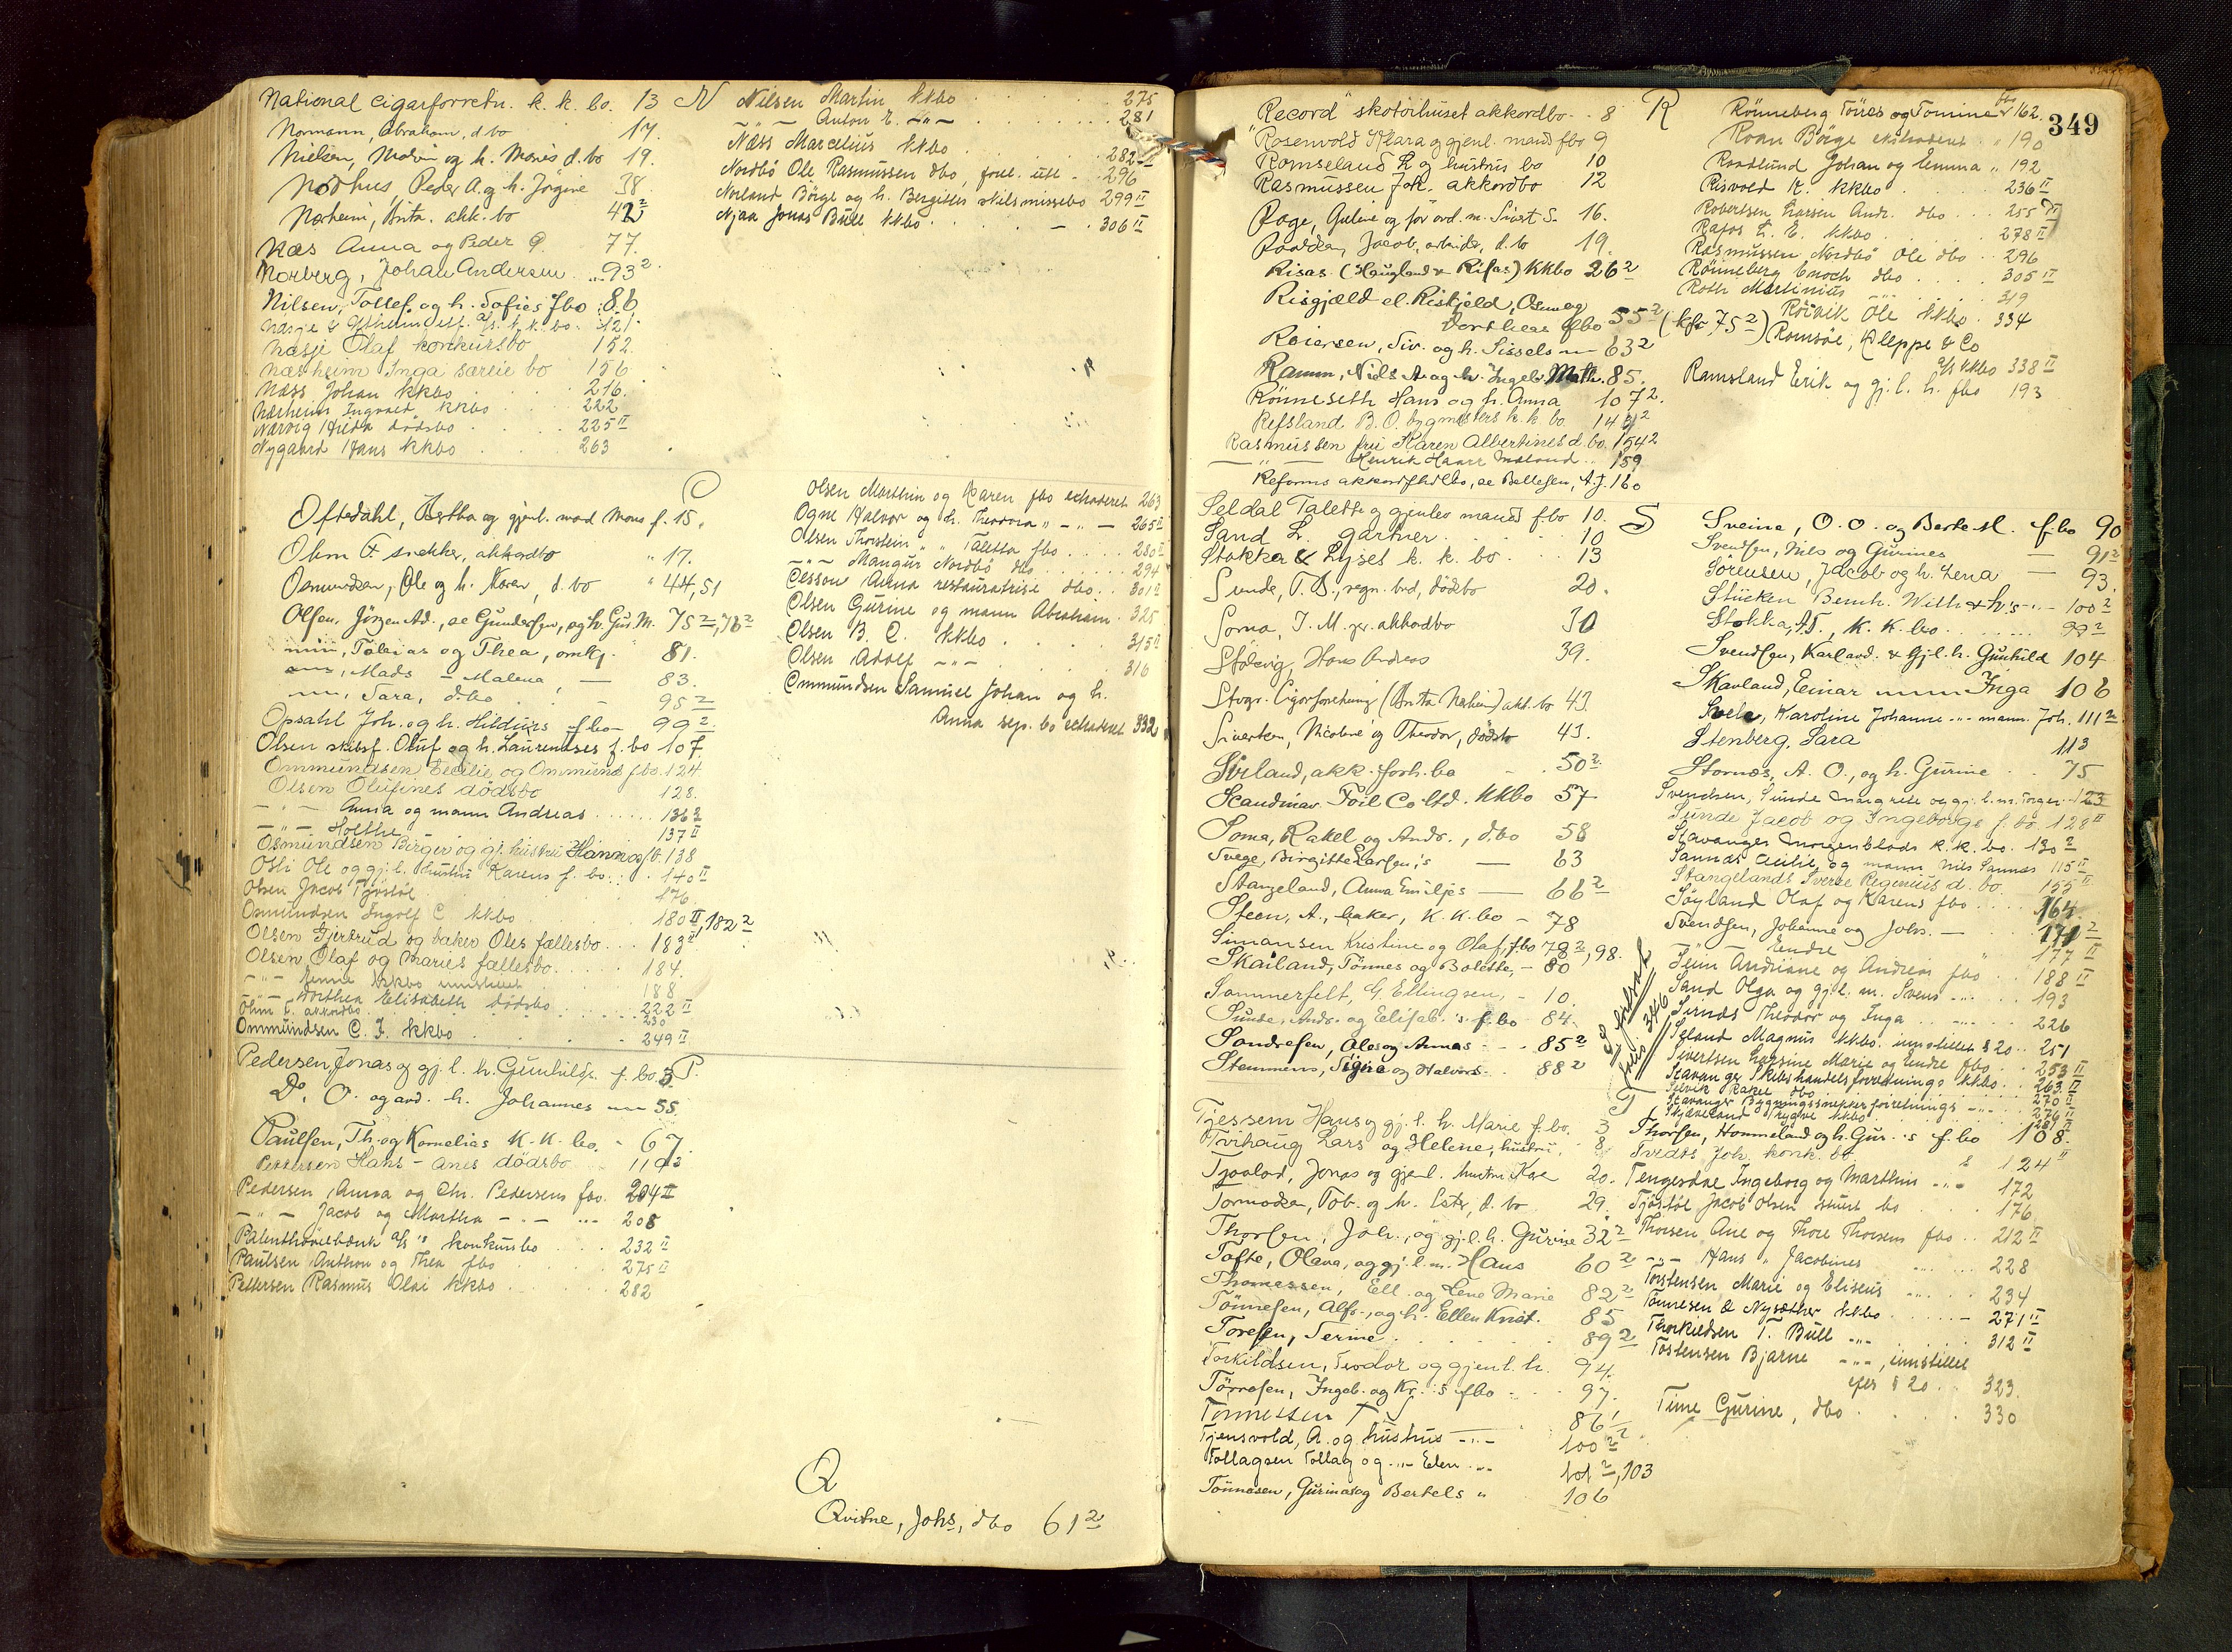 National cigarforretn. k. k. bo. 13
N
Normann, Abraham, d.bo 17.
Nielsen, og h. d.bo 19.
Nodhus, Peder A. og h. Jögine 38
Nærheim, Brita. akk. bo 42 2
Næs Anna og Peder 77.
Norberg, Johan Andersen 93 2
Nilsen, Tollef og h. Sofies fbo 86
121
Næsje Olaf konkursbo 152.
Nærheim Inga særeie bo 156
Næss Johan kkbo 216.
Nærheim Ingvald kkbo 222
Nærvig Hilda dödsbo 225 II
Nygaard Hans kkbo 263
Nilsen Martin kkbo 275
-"- Anton E. -"- 281
Næss Marcelius kkbo 282 II
Nordbö Ole Rasmussen dbo, 296
Norland Börge og h. Bergittes 299 II
Njaa Jonas Bull kkbo 306 II
O
Oftedahl, og gjenl. mand Mons f. 15.
Ohm F snekker, akkordbo " 17.
Osmundsen, Ole og h. Karen, d. bo " 44, 51
Olsen, Jörgen Ad., se Gundersen, og h. Gur. M. 75 2, 76 2
"", Tobias og Thea, omkj. 81.
"", Mads - Malena, — 83.
"", Sara, dbo 95 2
Opsahl Joh. og h. Hildurs fbo 99 2
Olsen skibsf. Oluf og h. Laurentses f. bo 107.
Ommundsen Cecilie og Ommund fbo. 124.
Olsen Olufines dödsbo 128.
-"- Anna og mann Andreas 136 2
-"- Holthe 137 II
Osmundsen Birger og gj. hustru Hannas fb. 138
Osli Ole og gj. l. hustru Karens f. bo. 140 II
Olsen Jacob Tjöstöl 176.
Omundsen Ingolf C kkbo 180 II, 182 2
Olsen Gjertrud og baker Oles fællesbo 183 II
Olsen Olaf og Maries fællesbo 184.
-"- kkbo innstillet 188
-"- Dorthea Elisabeth dödsbo 222 II
Ohm F. akkordbo 230
Ommundsen C. J. kkbo 249 II
Olsen Marthin og Karen fbo extraderet 263
Ogne Halvor og h. Theodora " - " - 265 II
Olsen Thorstein " " Taletta fbo 280 II
-"- Mangur Nordbö dbo 294
Olsson Anna restauratrise dbo 301 2
Olsen Gurine og mann Abraham 325
Olsen B. C. kkbo 315 II
Olsen Adolf -"- 316
Ommundsen Samuel Johan og h.
Anna sep. bo extraderet 332
P.
Pedersen, Jonas og gj. l. h. Gunhilds f. bo 3
Do. O. og avd. h. Johannes -"- 55.
Paulsen, Th. og Kornelias K. K. bo. - 67.
Pettersen Hans - Anes dödsbo 119
Pedersen Anna og Chr. Pedersens fbo. 204 II
-"- Jacob og Martha -"- 208
a/s's konkursbo 232 II
Paulsen Anthon og Thea fbo 275 II
Pettersen Rasmus Olai kkbo 282
Q
Qvitne, Johs, dbo 61 2
349
R
"Record" skotöihuset akkordbo 8
Rosenvold Klara og gjenl. mand fbo 9
Romseland L og hustrus bo 10
Rasmussen Joh. akkordbo 12
Rage, Guline og før avd. m. Sivert S. 16.
Jacob, arbeider, d. bo 19.
Risas (Haugland & Rifas) kkbo 26 2
Risgjæld el. Riskjeld, Osmeg
Dortheas fbo 55 2 (kfr 75 2)
Reiersen, Siv. og h. Sissels -"- 63 2
Ramm, Niels A. og h. Ingeb. Math. 85.
Rönneseth Hans og h. Anna 107 2.
Refsland B. O. bygmesters k. k. bo.
Rasmussen frü Karen Albertines d. bo. 154 2
-"- Henrik Haarr 159
Reforms akkordfbo, se Bellesen, A. J. 160
Rönneberg Tönes og Tomine fbo 162.
Roan Börge extraderet " 190
Raadlund Johan og Gemma " 192
Risvold K. kkbo 236 II
Robertsen Larsen Andr. dbo 255 II
Rafos L. E. kkbo 278 II
Rasmussen Nordbö Ole dbo 296
Rönneberg Enoch dbo 305 II
Roth Martinius -"- 319
Rövik Ole kkbo 334
Romsöe, Kleppe & Co
a/s kkbo 338 II
Ramsland Erik og gj. l. h. fbo 193
S
Seldal Talette og gjenlev mands f.bo 10.
Sand L. gartner 10
Stokka & Lyset k. k. bo 13
Sunde, T. B., regn. brd, dödsbo 20.
Soma, J. M. akkordbo 30
Stölsvig, Hans Andreas 39.
Stvgr. Cigarforretning (Brita Nærheim) akk. bo 43.
Sivertsen, Nicoline og Theodor, dödsbo 43.
Sørland, akk. forh. bo 50 2
Scandinav. Foil Co ltd. kkbo 57
Soma, Rakel og Andr., dbo 58
Svege, Birgitte Larsen,s — 63
Stangeland, Anna Emilies — 66 2
Steen, A., baker, K. K. bo - 78
Simonsen Kristine og Olaf, fbo 79 2, 98.
Skailand, Tönnes og Bolette, - 80
Sommerfelt, G. Ellingsen, - 10.
Sunde, Andr. og Elisab. 's f. bo 84.
Sondresen, Oles og Annas - - 85 2
Stemmens, Signe og Halvors 88 2
S fortsat
folio 346
Sveine, O. O. og Berte M. f. bo 90
Svendsen, Nils og Gurines — 91 2
Sörensen, Jacob og h. Lena — 93.
Stücken Bernh. Wilh & h's -"- 100 2
Stokka, A. T., K. K. bo 99 2
Svendsen, Karl avd. & Gj. l. h. Gunhild 104
Skavland, Einar -"- Inga 106
Svele, Karoline Johanne -"- mann Joh. 111 2
Stenberg, Sara 113
Stornæs, A. O., og h. Gurine 75
Svendsen, Sunde Margrete og gj. l. m. Torger 123
Sunde Jacob og Ingeborgs f. bo 128 II
Stavanger Morgenblads k. k. bo. 130 2
Sannæs Cecilie og mann Nils Sannæs 115 II
Stangelands Sverre Regenius d. bo. 155 II
Söyland Olaf og Karens fbo 164.
Svendsen, Johanne og Johs. — 171 2
-"- Endre 177 II
Andriane og Andreas fbo 188 II
Sand Olga og gj. l. m. Svens -"- 193
Sirnes Theodor og Inga -"- 226
Seland Magnus kkbo. innstillet § 20 251
Sivertsen Larsine Marie og Endre fbo 253 II
Stavanger Skibshandelsforretnings kkbo 263 II
Selvik Rakel dbo 270 II
Stavanger Bygningssnekkerforretnings -"- 276 II
Skjæveland Trygve kkbo 281 II
T
Tjessem Hans og gj. l. h. Marie f. bo. 3
Tvihaug Lars og Helene, hustru, 8
Tjaaland, Jonas og gjenl. hustru 20.
Tormodsen, Tob. og h. d. bo 29.
Thorsen, Joh., og gj. l. h. Gurine 32 2
Tofte, Olava, og gj. l. m. Hans 60 2
Thomassen, Ell. og Lene Marie 82 2
Tönnesen, Alfr., og h. Ellen Krist. 85
Toresen, Serine 89 2
Torkildsen, Teodor og gjenl. h. 94.
Törresen, Ingeb. og Kr. 's fbo 97.
Tönnessen T J 86 1
Tjensvold, A. og hustrus -"- 100 2
Tollagsen Tollag og -"- Elen -"- 101 2, 103
Tönnesen, Gurines og Bertels " 106
Thorsen, Hommeland og h. Gur. 's f. bo 108.
Tvedts Joh. konk. bo 124 II
Tengesdal Ingeborg og Marthin -"- 172
Tjöstöl Jacob Olsen bo 176
Thorsen Ane og Thore Thorsens fbo 212 II
-"- Hans " Jacobines 228
Torstensen Marie og Eliseus -"- 234
Tönnesen & Nysæther kkbo 271 II
Thorkildsen T. Bull -"- 312 II
Tostensen Bjarne -"-, innstillet
efter § 20 323.
Time Gurine, dbo 330